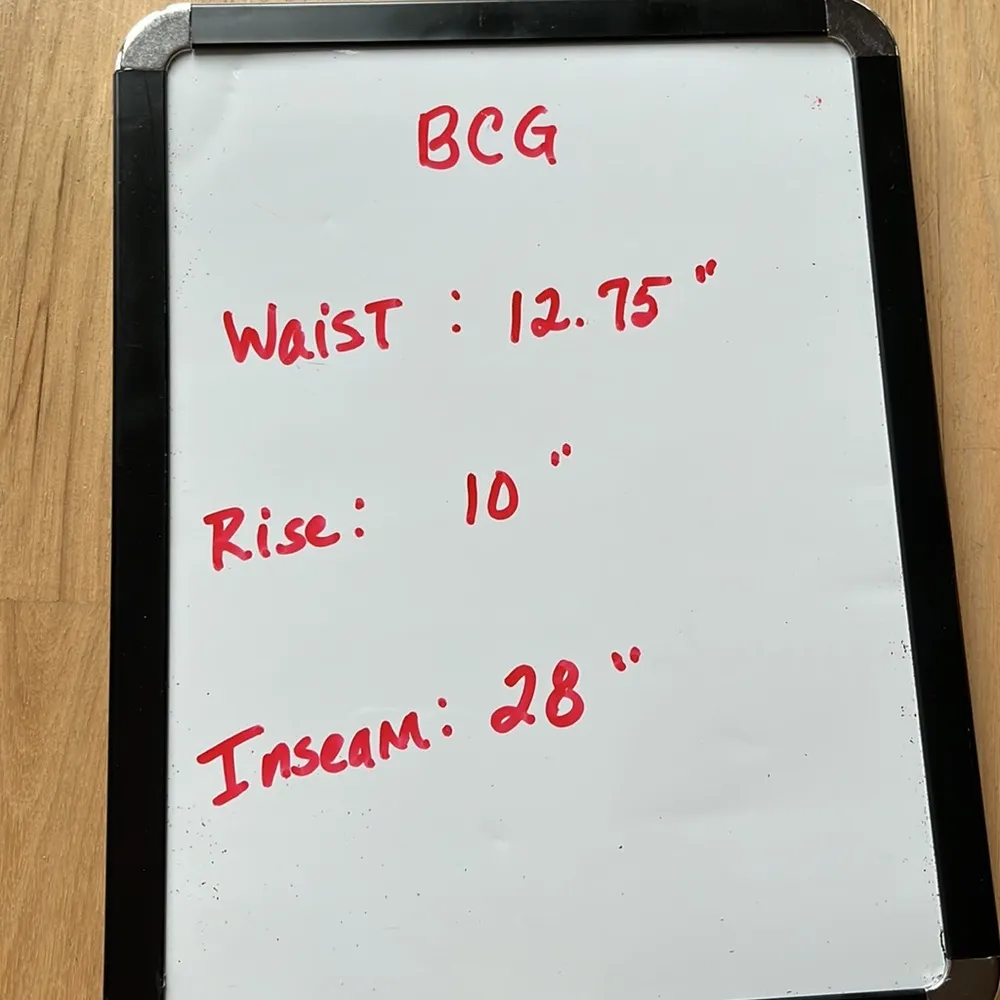 BCG
Waist : 12.75"
Rise: 10"
Inseam: 28"